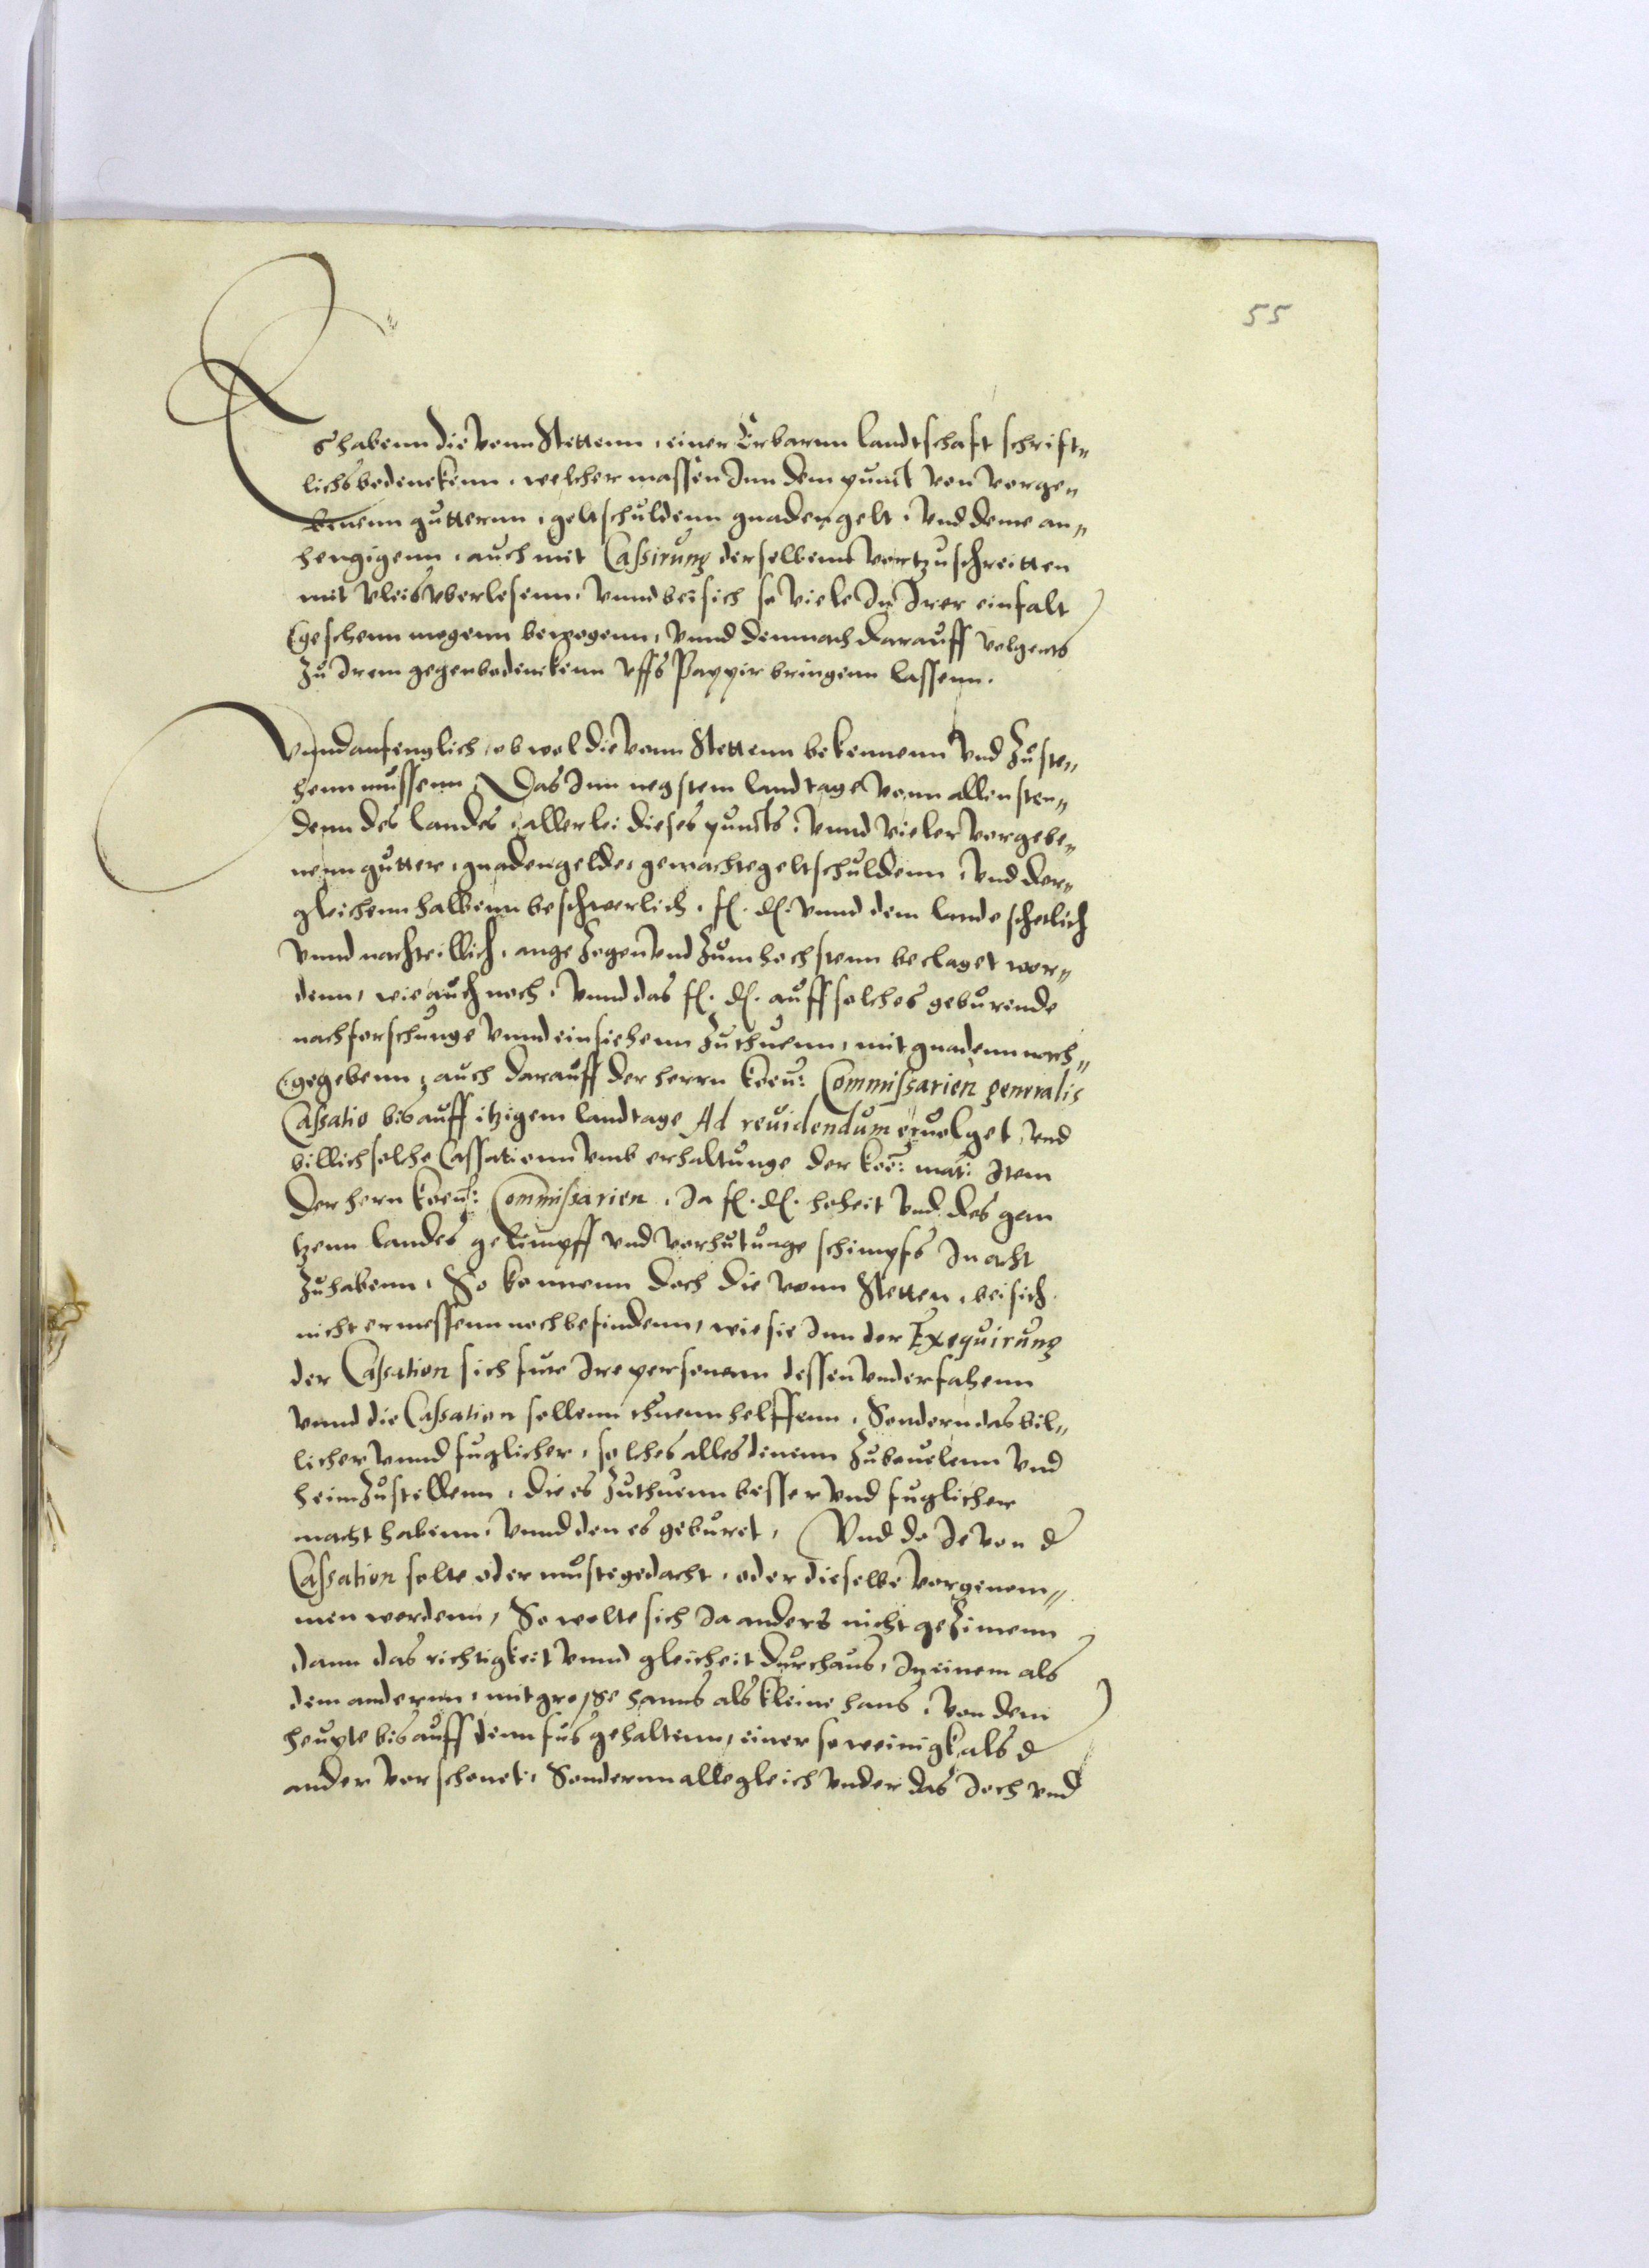 55
Es habenn die vonn Stettenn, einer Erbarnn landtschaft schrift„
lichs bedenckenn, welcher massen Inn dem punct von vorge„
benenn gutternn, geltschuldenn gnadengelt, vnd deme an„
hengigenn, auch mit Cassirung derselbenn vortzuschreitten
mit vleis vberlesenn, vnnd bei sich so viele In Irer einfalt
geschenn mogenn bewogenn, vnnd demnach darauff volgents
Zu Irem gegenbedenckenn vffs Pappir bringenn lassenn.
Vnnd anfenglich, ob wol die vonn Stettenn bekennenn vnd Zuste„
henn mussenn, Das Inn negstem landtage vonn allen sten„
denn des landes, allerlei dieses puncts, vnnd vieler vorgebe„
nenn gutter, gnadengelde, gemachte geltschuldenn, vnd der„
gleichenn halbenn beschwerlich, fl. dl. vnnd dem lande schetlich
vnnd nachteillich, angezogen vnd Zum hochstenn beclaget wor„
denn, wie auch noch, vnnd das fl. dl. auff solches geburende
nachforschunge vnnd einsehenn Zuthuenn, mit gnadenn nach„
gegebenn, auch darauff der herrn koen: Commissarien generalis
Cassatio bis auff itzigem landtage Ad reuidendum eruolget, vnd
billich solche Cassationn vmb erhaltunge der koe: mat: Item
Der hern koen: Commissarien, Ja fl. dl. hoheit vnd des gan
tzenn landes gelimpff vnd verhutunge schimpfs In acht
Zuhabenn, So konnenn doch die vonn Stetten, bei sich
nicht ermessenn noch befindenn, wie sie Inn der Exequirung
der Cassation sich fur Ire personenn dessen vnderfahenn
vnnd die Cassation sollenn thuenn helffenn, Sondern das bil„
licher vnnd fuglicher, solches alles denenn Zubeuelenn vnd
heimZustellenn, die es Zuthuenn besser vnd fuglicher
macht habenn, vnnd den es geburet, Vnd do Je von d
Cassation solte oder muste gedacht, oder dieselbe vorgenom„
men werdenn, So wolte sich Ja anders nicht geZimenn
dann das richtigkeit vnnd gleicheit durchaus, In einem als
dem andernn, mit grosse hanns als kleine hans, von dem
heupte bis auff denn fus gehaltenn, einer so weinigk als d
ander verschonet, Sondernn alle gleich vnder das Joch vnd